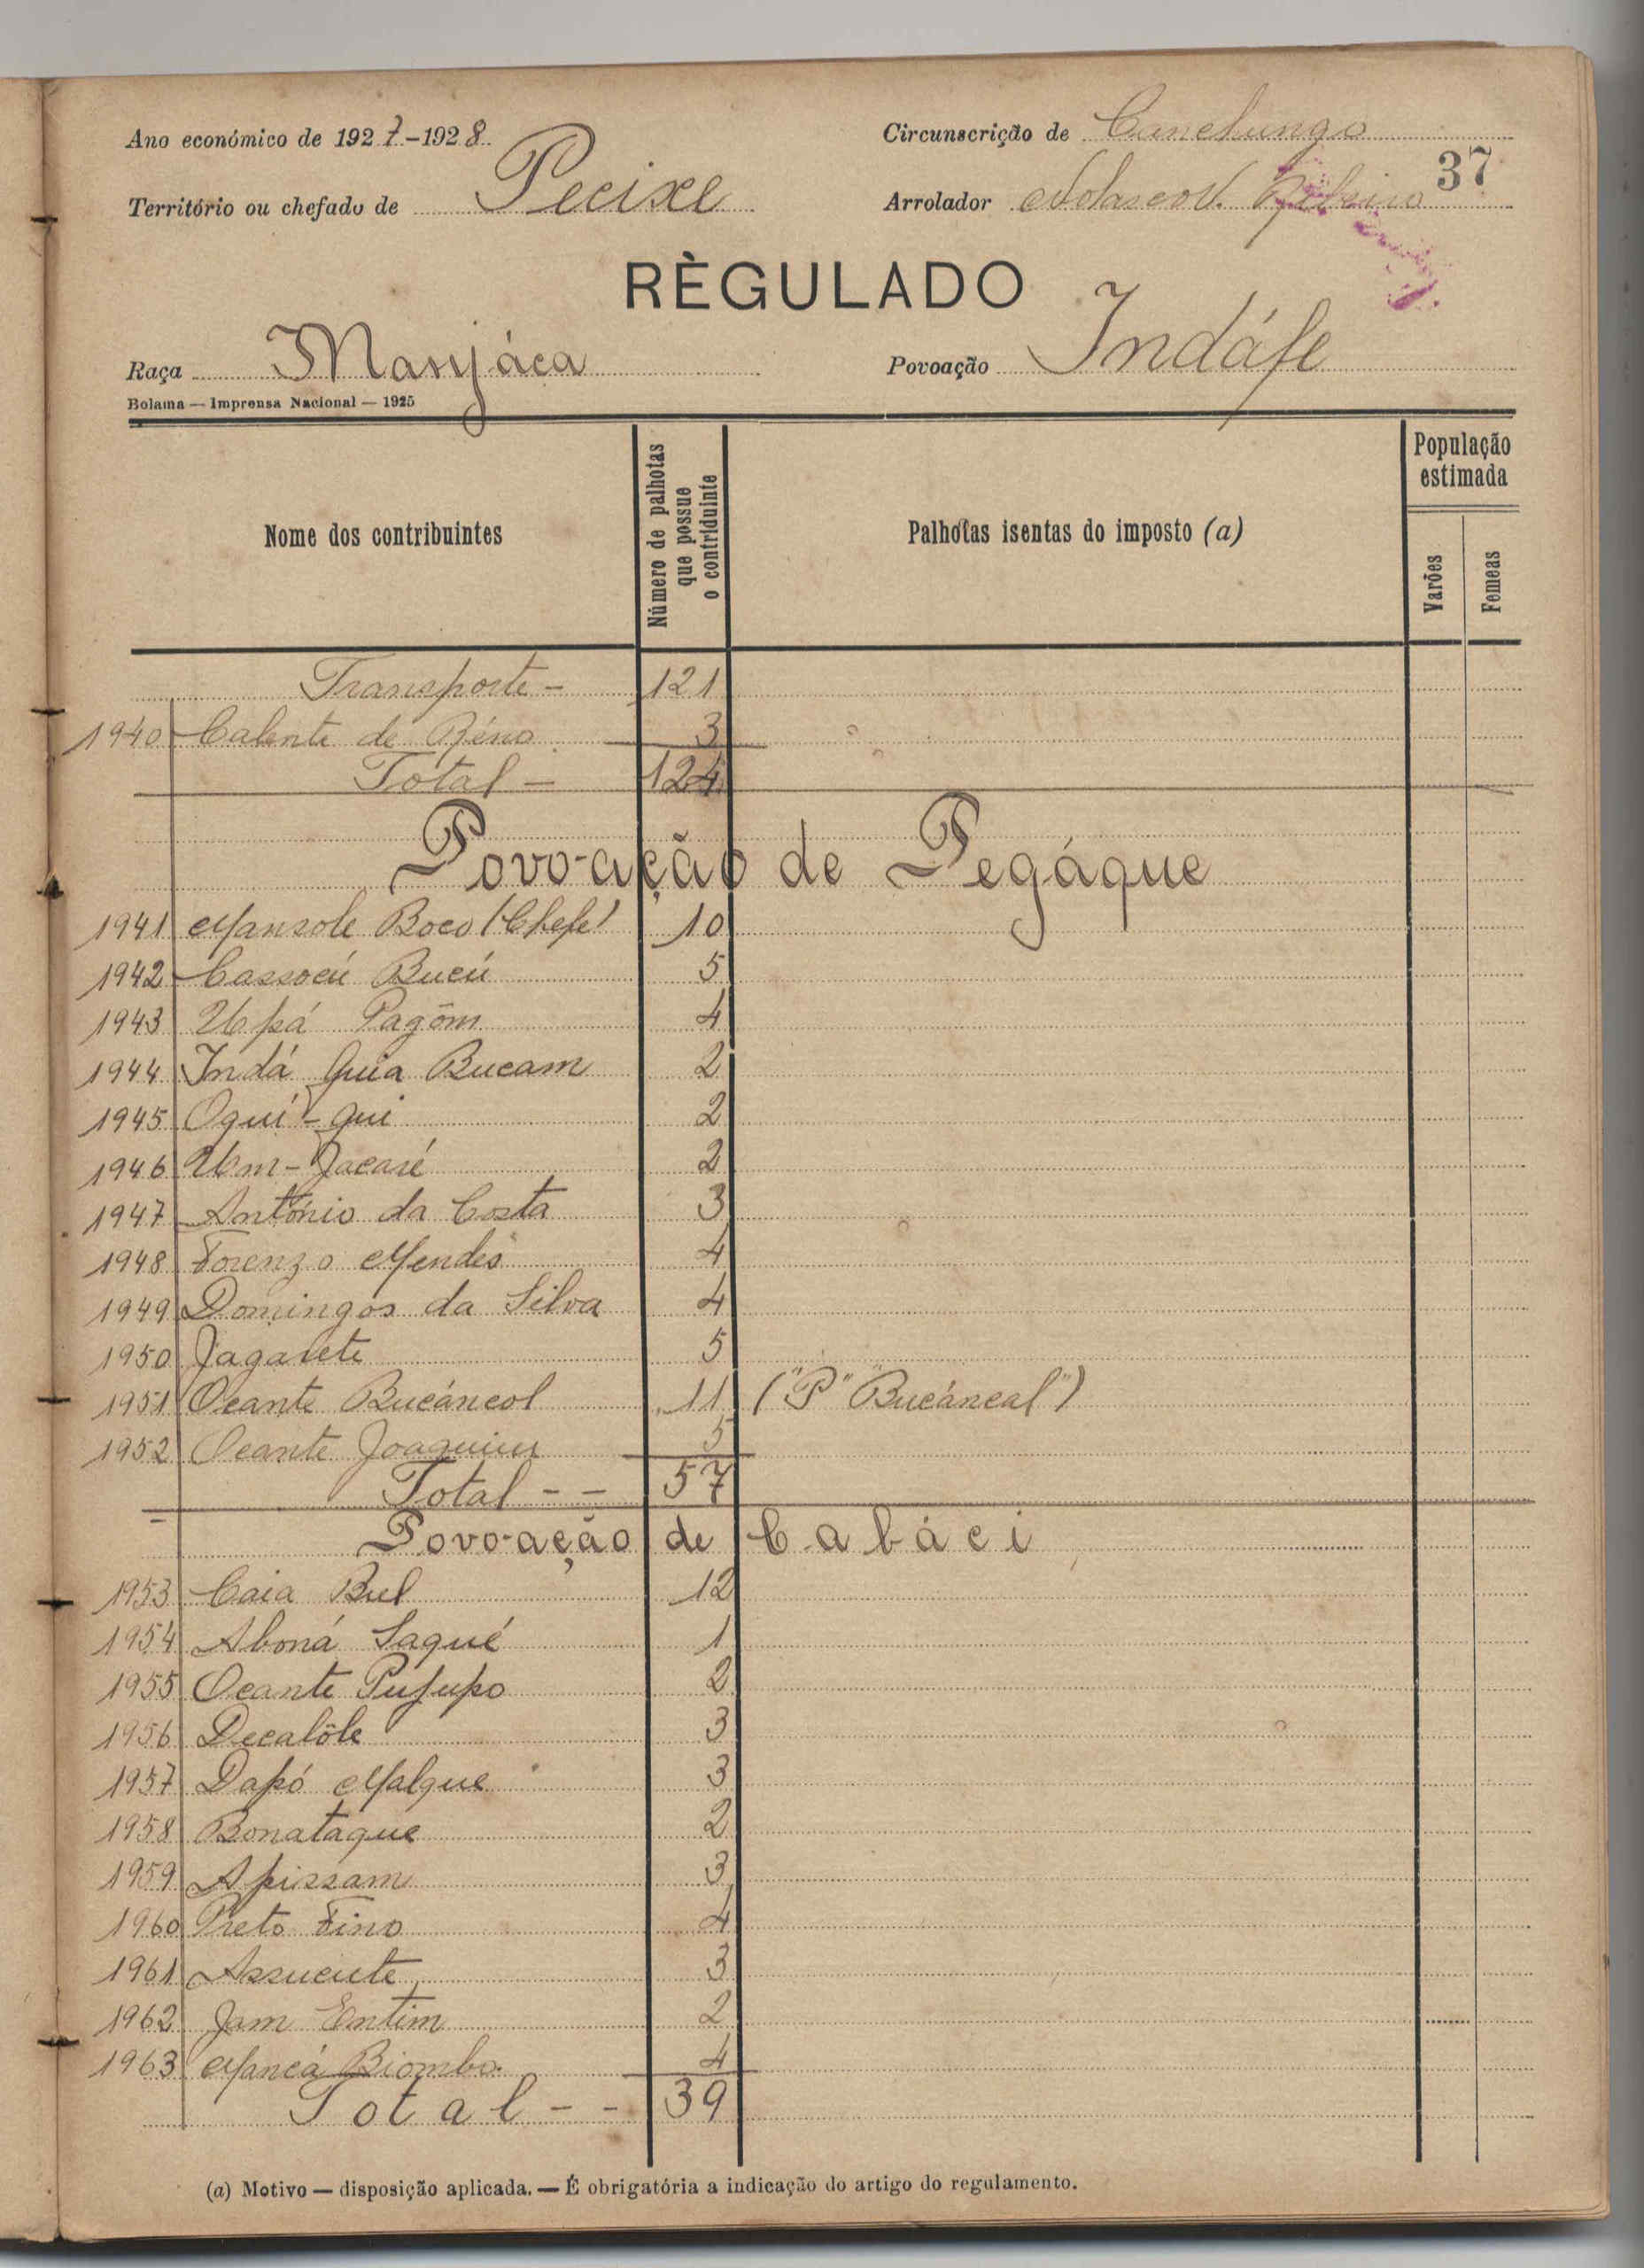 Ano económico de 1927-1928
Circunscrição de Canchungo
37
Território ou chefado de Pecixe
Arrolador Nolasco V. Ribeiro
RÈGULADO
Raça Manjáca
Povoação Indáfe
Bolama — Imprensa Nacional — 1925
Nome dos contribuintes
Número de palhotas que possue o contriduinte
Palhotas isentas do imposto (a)
População estimada
Varões
Femeas
Transporte - 121
1940 Calente de 3
Total - 124
Povoação de Pegáque
1941 Mansole Boco (Chefe) 10
1942 Cassocú Bucú 5
1943 Upá Pagôm 4
1944 Indá Guia Bucam 2
1945 Oquí-qui 2
1946 Um-Jacaré 2
1947 António da Costa 3
1948 Lorenzo Mendes 4
1949 Domingos da Silva 4
1950 Jagarete 5
1951 Ocante Bucáncol 11 ("P" Bucáncal")
1952 Ocante Joaquim 5
Total - - 57
Povoação de Cabáci
1953 Caia Bul 12
1954 Aboná Saqué 1
1955 Ocante Pufupo 2
1956 Decalôle 3
1957 Dapó Malque 3
1958 Bonataque 2
1959 Apissam 3
1960 Preto Fino 4
1961 Assucute 3
1962 Jam Entim 2
1963 Mancá Biombo 4
Total - - 39
(a) Motivo — disposição aplicada. — É obrigatória a indicação do artigo do regulamento.